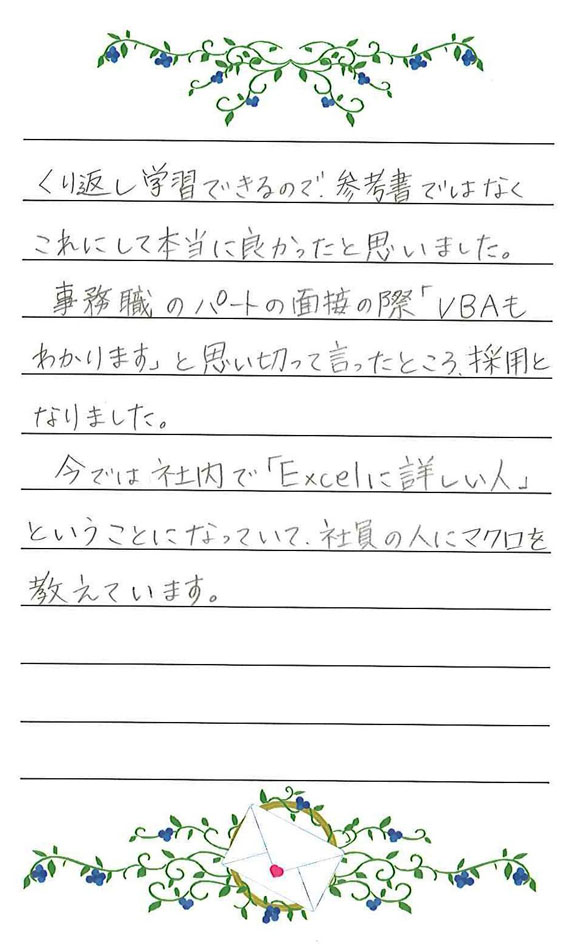 くり返し学習できるので、参考書ではなく
これにして本当に良かったと思いました。
事務職のパートの面接の際「VBAも
わかります」と思い切って言ったところ、採用と
なりました。
今では社内で「Excelに詳しい人」
ということになっていて、社員の人にマクロを
教えています。